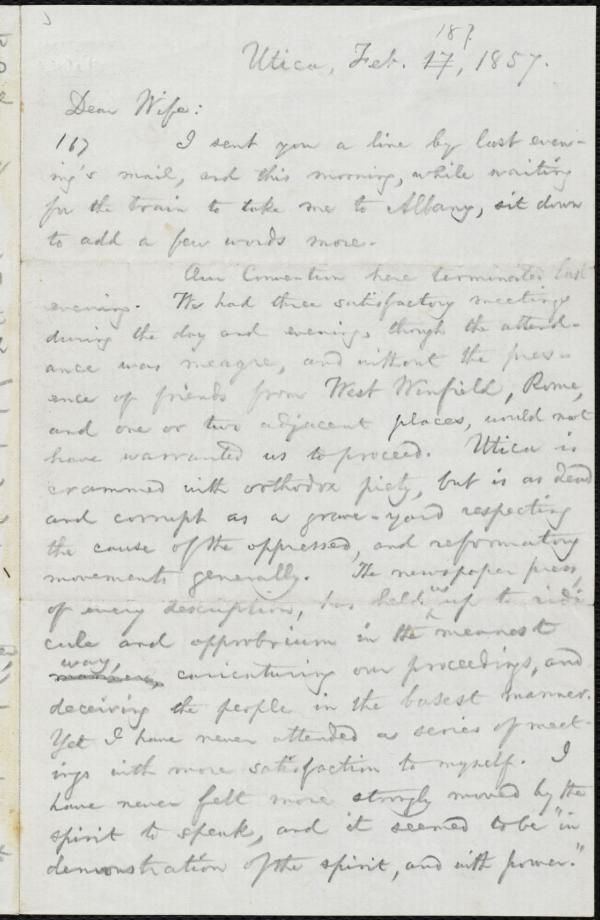 187
Utica, Feb. 17, 1857.
Dear Wife:
167 I sent you a line by last even-
ing's mail, and this morning, while waiting
for the train to take me to Albany, sit down
to add a few words more.
Our Convention here terminated last
evening. We had three satisfactory meetings
during the day and evening, though the attend-
ance was meagre, and without the pres-
ence of friends from West Winfield, Rome,
and one or two adjacent places, would not
have warranted us to proceed. Utica is
crammed with orthodox piety, but is as dead
and corrupt as a grave-yard respecting
the cause of the oppressed, and reformatory
movements generally. The newspaper press,
of every description, has held us up to ridi-
cule and opprobrium in the meanest
way, caricaturing our proceedings, and
deceiving the people in the basest manner.
Yet I have never attended a series of meet-
ings with more satisfaction to myself. I
have never felt more strongly moved by the
spirit to speak, and it seemed to be "in
demonstration of the spirit, and with power."